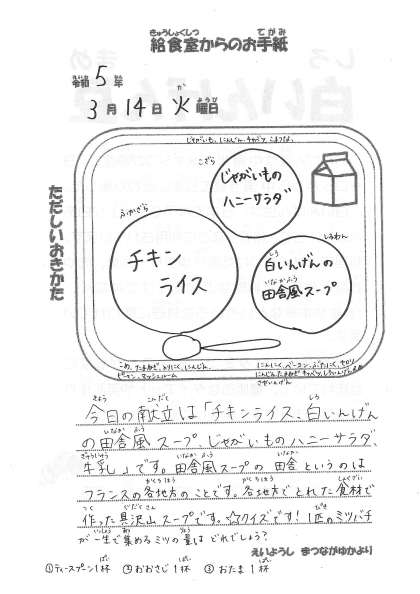 給食室からのお手紙
令和5年
3月14日火曜日
ただしいおきかた
じゃがいも、にんじん、キャベツ、
こざら
じゃがいもの
ハニーサラダ
ふかざら
チキン
ライス
しるわん
白いんげんの
田舎風スープ
こめ、たまねぎ、とりにく、にんじん、
ピーマン、マッシュルーム
にんにく、ベーコン、ぶたにく、セロリ
にんじん、たまねぎ、キャベツ、しろいんげんまめ
さやいんげん
今日の献立は「チキンライス、白いんげん
の田舎風スープ、じゃがいものハニーサラダ、
牛乳」です。田舎風スープの田舎というのは
フランスの各地方のことです。各地方でとれた食材で
作った具沢山スープです。☆クイズです！1匹のミツバチ
が一生で集めるミツの量はどれでしょう？
えいようし まつながゆかより
①ティースプーン1杯 ②おおさじ1杯 ③おたま1杯